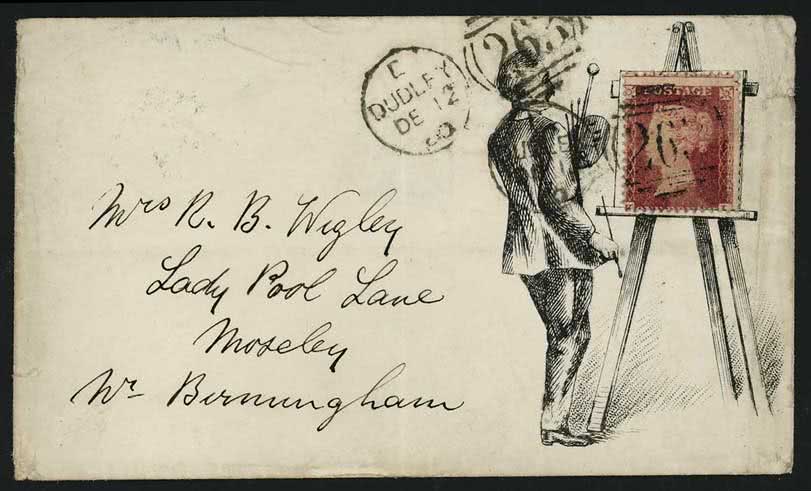 E
DUDLEY
DE 12
80
265
POSTAGE
265
Mrs R. B. Wigley
Lady Pool Lane
Moseley
Nr Birmingham